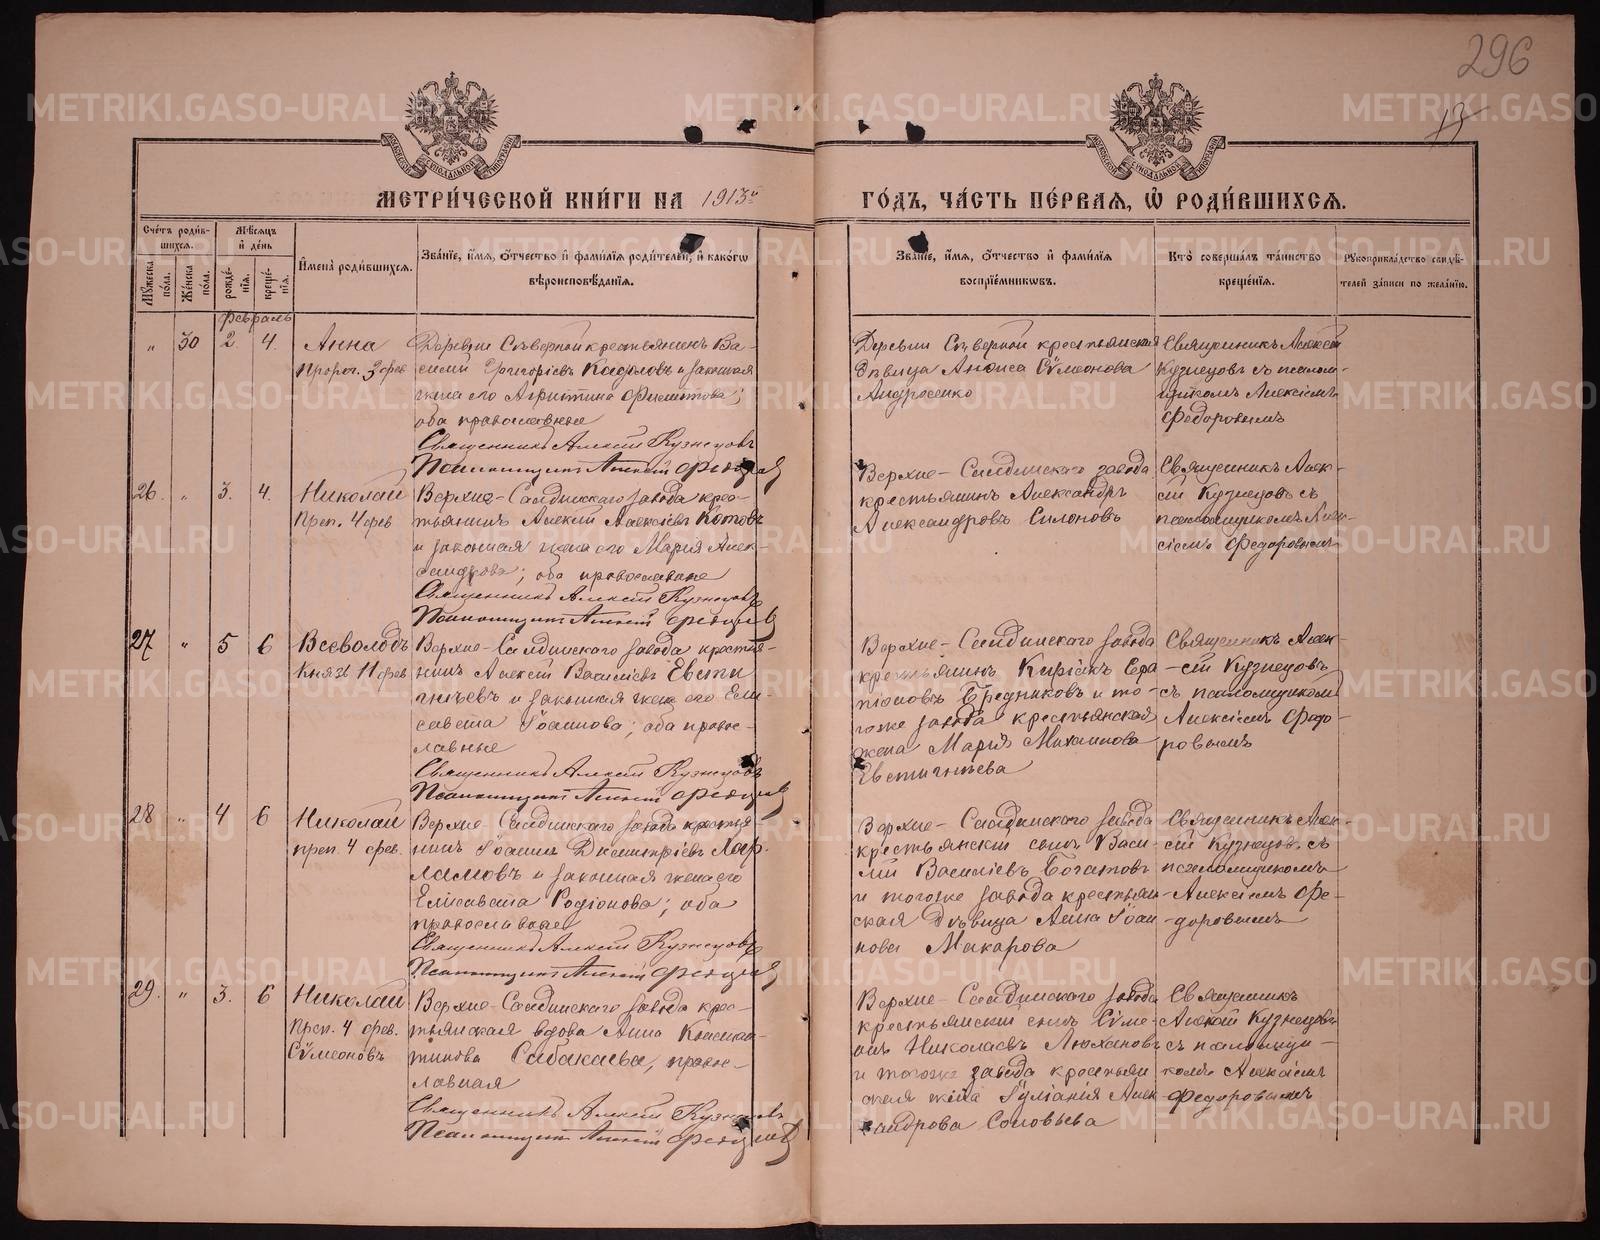 296
13
МОСКОВСКОЙ СѴНОДАЛЬНОЙ ТИПОГРАФІИ
МОСКОВСКОЙ СѴНОДАЛЬНОЙ ТИПОГРАФІИ
МЕТРИ́ЧЕСКОЙ КНИ́ГИ НА 1913й
ГО́ДЪ, ЧА́СТЬ ПЕ́РВАЯ, Ѽ РОДИ́ВШИХСЯ.
Сче́тъ роди́в-
шихся.
Мѣ́сяцъ
и҆ де́нь
Мꙋ́жеска по́ла.
Же́нска по́ла.
рожде́нїя.
креще́нїя.
И҆мена̀ роди́вшихся.
Зва́нїе, и҆́мя, ѻ҆́тчество и҆ фами́лїя роди́телей, и҆ како́гѡ
вѣроисповѣ́данїя.
Зва́нїе, и҆́мя, ѻ҆́тчество и҆ фами́лїя
воспрїе́мникѡвъ.
Кто̀ соверша́лъ та́инство
креще́нїя.
Рꙋкоприкла́дство свидѣ́-
телей за́писи по жела́нїю.
Февраль
„ 30 2. 4.
Анна
Прор. 3 фев.
Деревни Сѣверной крестьянинъ Ва-
силій Григоріевъ и законная
жена его
оба православные
Священникъ Алексій Кузнецовъ
Псаломщикъ Алексій Федоровъ
Деревни Сѣверной крестьянская
дѣвица Анѳиса Сѵмеонова
Андросенко
Священникъ Алексій
Кузнецовъ съ псалом-
щикомъ Алексіемъ
Федоровымъ
26. „ 3. 4.
Николай
Преп. 4 фев
Верхне-Салдинскаго завода крес-
тьянинъ Алексій Алексіевъ Котовъ
и законная жена его Марія Алек-
сандрова; оба православные
Священникъ Алексій Кузнецовъ
Псаломщикъ Алексій Федоровъ
Верхне-Салдинскаго завода
крестьянинъ Александръ
Александровъ Силоновъ
Священникъ Алек-
сій Кузнецовъ съ
псаломщикомъ Алек-
сіемъ Федоровымъ
27 „ 5 6
Всеволодъ
Князь 11 фев
Верхне-Салдинскаго завода крестья-
нинъ Алексій Василіевъ Евсти
гнѣевъ и законная жена его Ели-
савета Іоаннова; оба правос-
лавные
Священникъ Алексій Кузнецовъ
Псаломщикъ Алексій Федоровъ
Верхне-Салдинскаго завода
крестьянинъ Киріакъ Ера
тіоновъ Бредниковъ и то-
гоже завода крестьянская
жена Марія Михаилова
Евстигнѣева
Священникъ Алек-
сій Кузнецовъ
съ псаломщикомъ
Алексіемъ Федо-
ровымъ
28 „ 4 6
Николай
преп. 4 фев.
Верхне-Салдинскаго завода крестья-
нинъ Іоаннъ Димитріевъ Хар-
ламовъ и законная жена его
Елисавета Родіонова; оба
православные
Священникъ Алексій Кузнецовъ
Псаломщикъ Алексій Федоровъ
Верхне-Салдинскаго завода
крестьянскій сынъ Васи-
лій Василіевъ Богатовъ
и тогоже завода крестьян-
ская дѣвица Анна Іоан
нова Макарова
Священникъ Алек-
сій Кузнецовъ съ
псаломщикомъ
Алексіемъ Фе-
доровымъ
29. „ 3. 6
Николай
Преп. 4 фев.
Сѵмеоновъ
Верхне-Салдинскаго завода крес-
тьянская вдова Анна Констан-
тинова Сабакаева, правос-
лавная
Священникъ Алексій Кузнецовъ
Псаломщикъ Алексій Федоровъ
Верхне-Салдинскаго завода
крестьянскій сынъ Сѵме-
онъ Николаевъ Люхановъ
и тогоже завода крестьян
ская жена Іуліанія Алек
сандрова Соловьева
Священникъ
Алексій Кузнецовъ
съ псаломщи-
комъ Алексіемъ
Федоровымъ